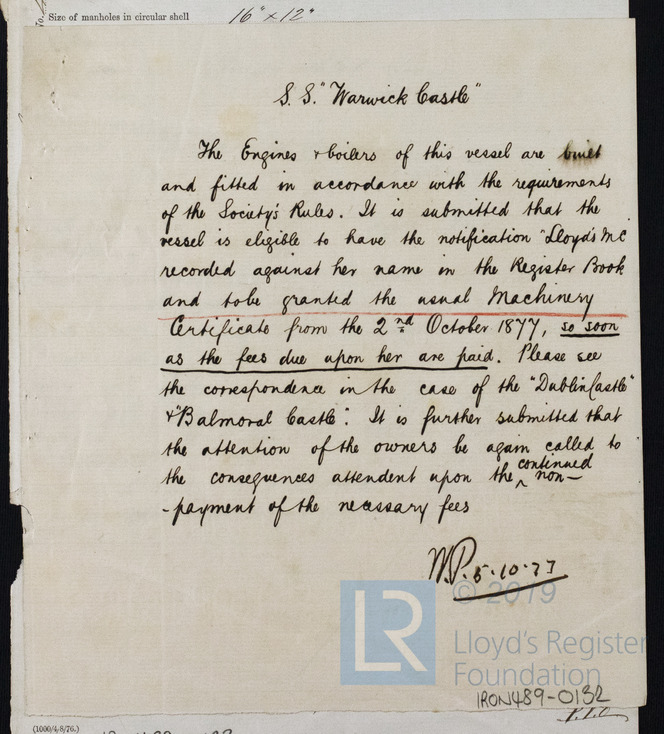 Size of manholes in circular shell 16" × 12"
S. S. "Warwick Castle"
The Engines & boilers of this vessel are built
and fitted in accordance with the requirements
of the Society's Rules. It is submitted that the
vessel is eligible to have the notification "Lloyd's MC
recorded against her name in the Register Book
and to be granted the usual Machinery
Certificate from the 2nd October 1877, so soon
as the fees due upon her are paid. Please see
the correspondence in the case of the "Dublin Castle"
& "Balmoral Castle". It is further submitted that
the attention of the owners be again called to
the consequences attendent upon the continued non-
-payment of the necessary fees
W.P. 5.10.77
© 2019
LR
Lloyd's Register
Foundation
IRON489-0132
P.T.O
(1000/4/8/76.)